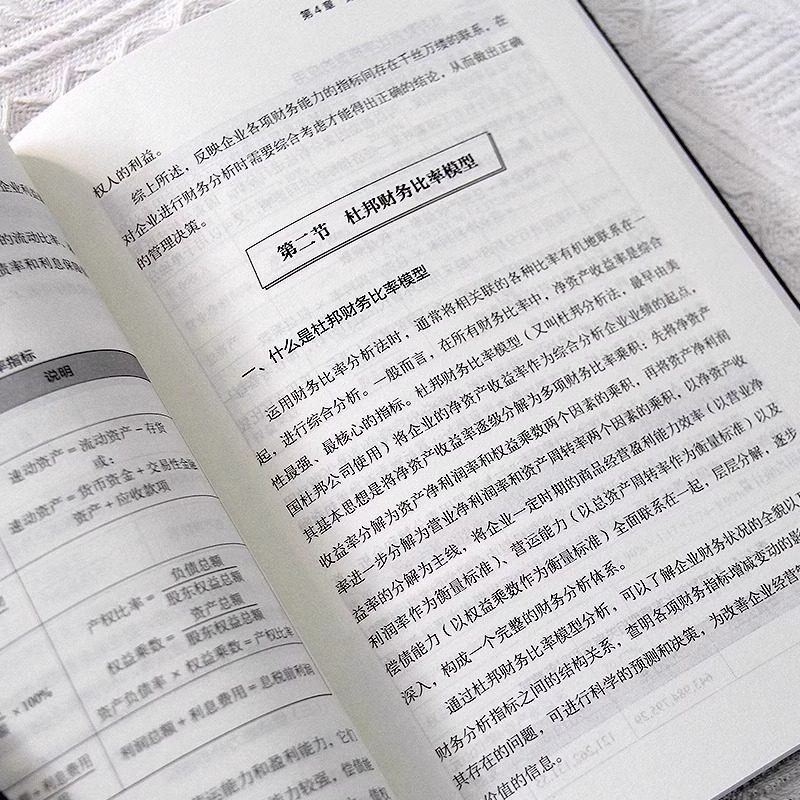 企业利
的流动比率、
债率和利息保障
率指标
说明
速动资产 = 流动资产 - 存货
或：
速动资产 = 货币资金 + 交易性金融
资产 + 应收款项
产权比率 = 负债总额
股东权益总额
权益乘数 = 资产总额
股东权益总额
资产负债率 × 权益乘数 = 产权比率
× 100%
利润总额 + 利息费用 = 息税前利润
+ 利息费用
营运能力和盈利能力，它们
能力较强，偿债能
第 4 章
权人的利益。
综上所述，反映企业各项财务能力的指标间存在千丝万缕的联系，在
对企业进行财务分析时需要综合考虑才能得出正确的结论，从而做出正确
的管理决策。
第二节 杜邦财务比率模型
一、什么是杜邦财务比率模型
运用财务比率分析法时，通常将相关联的各种比率有机地联系在一
起，进行综合分析。一般而言，在所有财务比率中，净资产收益率是综合
性最强、最核心的指标。杜邦财务比率模型（又叫杜邦分析法，最早由美
国杜邦公司使用）将企业的净资产收益率作为综合分析企业业绩的起点，
其基本思想是将净资产收益率逐级分解为多项财务比率乘积：先将净资产
收益率分解为资产净利润率和权益乘数两个因素的乘积，再将资产净利润
率进一步分解为营业净利润率和资产周转率两个因素的乘积，以净资产收
益率的分解为主线，将企业一定时期的商品经营盈利能力效率（以营业净
利润率作为衡量标准）、营运能力（以总资产周转率作为衡量标准）以及
偿债能力（以权益乘数作为衡量标准）全面联系在一起，层层分解，逐步
深入，构成一个完整的财务分析体系。
通过杜邦财务比率模型分析，可以了解企业财务状况的全貌以
财务分析指标之间的结构关系，查明各项财务指标增减变动的影
其存在的问题，可进行科学的预测和决策，为改善企业经营管
价值的信息。